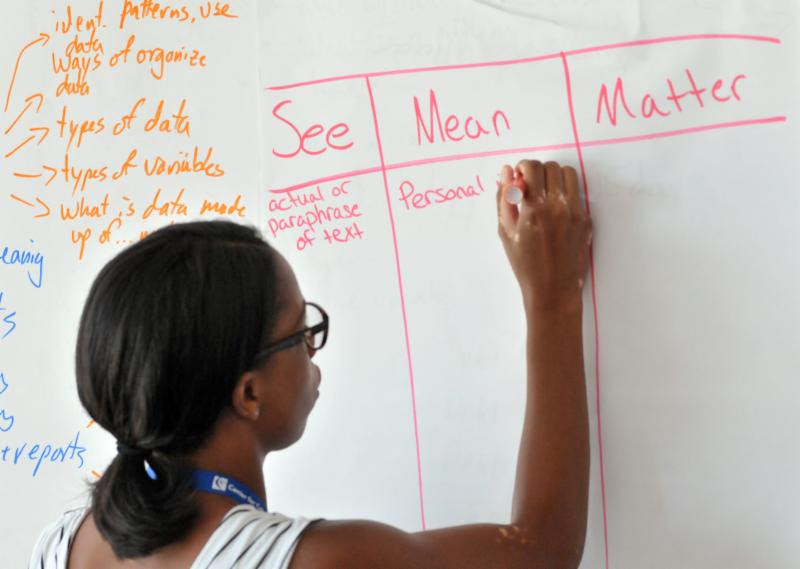 ident. patterns, use
data
ways of organize
data
types of data
types of variables
What is data made
up of...
reports
See
Mean
Matter
actual or
paraphrase
of text
Personal
Center for